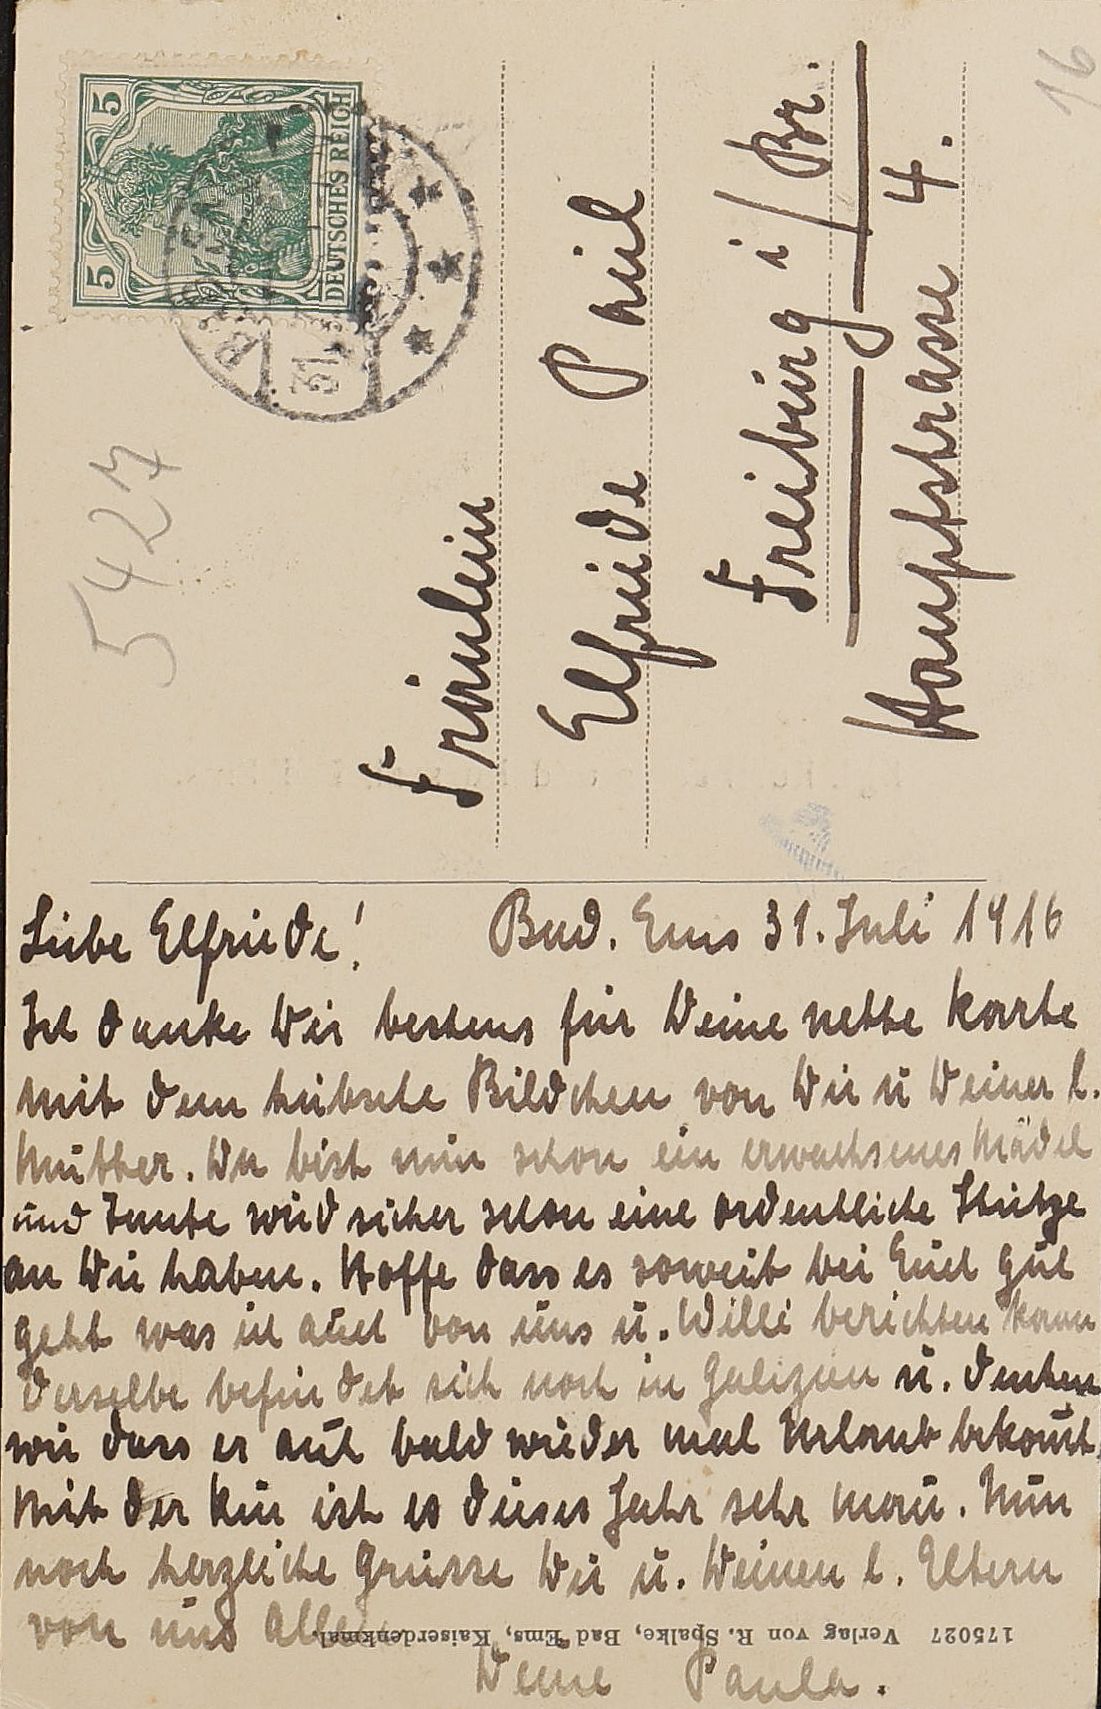 5
5
DEUTSCHES REICH
31.
5427
16
Fräulein
Elfriede Pail
Freiburg i/Br.
Hauptstrasse 4.
Liebe Elfriede! Bad. Ems 31. Juli 1916
Ich danke Dir bestens für Deine nette Karte
mit dem hübsche Bildchen von Dir u Deiner l.
Mutter. Du bist nun schon ein erwachsenes Mädel
und Tante wird sicher schon eine ordentliche Stütze
an Dir haben. Hoffe dass es soweit bei Euch gut
geht was ich auch von uns u. Willi berichten kann
derselbe befindet sich noch in Galizien u. denken
wir dass er auch bald wieder mal Urlaub bekomt.
Mit der Kur ist es dieses Jahr sehr mau. Nun
noch herzliche Grüsse Dir u. Deinen l. Eltern
von uns Allen
Deine Paula.
175027 Verlag von R. Spalke, Bad Ems, Kaiserdenkmal.